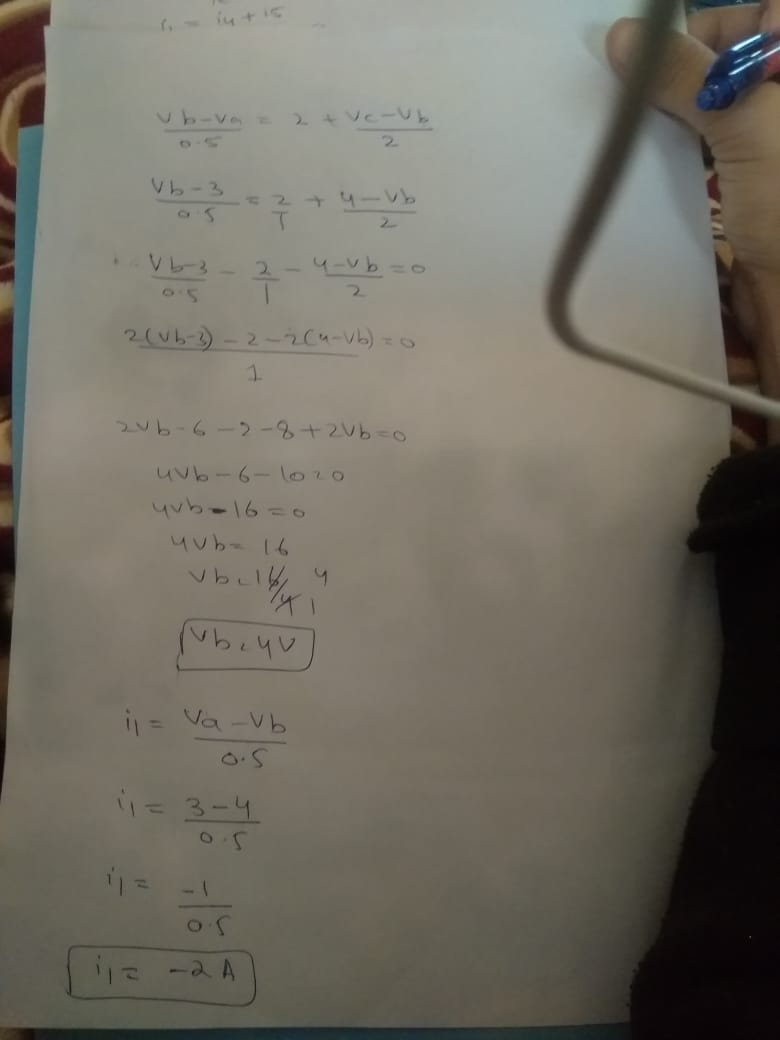 i1 = i4 + i5
Vb-Va/0.5 = 2 + Vc-Vb/2
Vb-3/0.5 = 2/1 + 4-Vb/2
Vb-3/0.5 - 2/1 - 4-Vb/2 = 0
2(Vb-3) - 2 - 2(4-Vb)/1 = 0
2Vb-6-2-8+2Vb=0
4Vb-6-10=0
4Vb-16=0
4Vb= 16
Vb=16/4 4 1
Vb=4V
i1= Va-Vb/0.5
i1= 3-4/0.5
i1= -1/0.5
i1= -2A